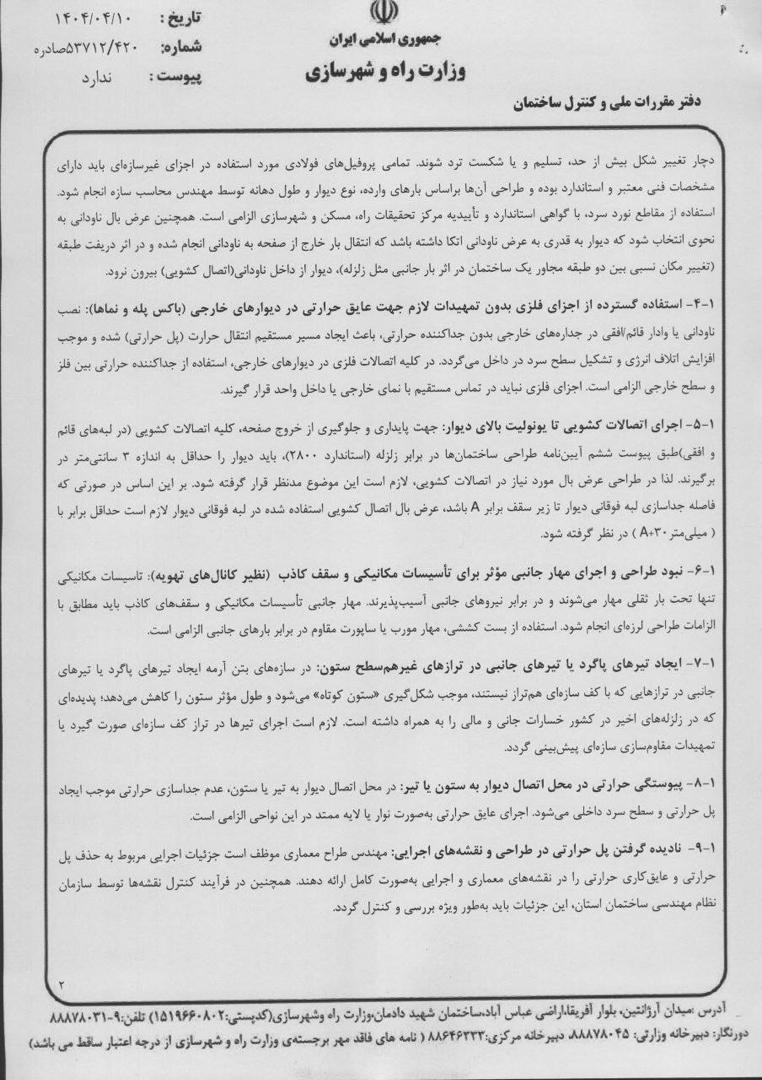 جمهوری اسلامی ایران
وزارت راه و شهرسازی
دفتر مقررات ملی و کنترل ساختمان
تاریخ : ۱۴۰۴/۰۴/۱۰
شماره: ۵۳۷۱۲/۴۲۰صادره
پیوست : ندارد
دچار تغییر شکل بیش از حد، تسلیم و یا شکست ترد شوند. تمامی پروفیل‌های فولادی مورد استفاده در اجزای غیرسازه‌ای باید دارای
مشخصات فنی معتبر و استاندارد بوده و طراحی آن‌ها براساس بارهای وارده، نوع دیوار و طول دهانه توسط مهندس محاسب سازه انجام شود.
استفاده از مقاطع نورد سرد، با گواهی استاندارد و تأییدیه مرکز تحقیقات راه، مسکن و شهرسازی الزامی است. همچنین عرض بال ناودانی به
نحوی انتخاب شود که دیوار به قدری به عرض ناودانی اتکا داشته باشد که انتقال بار خارج از صفحه به ناودانی انجام شده و در اثر دریفت طبقه
(تغییر مکان نسبی بین دو طبقه مجاور یک ساختمان در اثر بار جانبی مثل زلزله)، دیوار از داخل ناودانی(اتصال کشویی) بیرون نرود.
۱-۴- استفاده گسترده از اجزای فلزی بدون تمهیدات لازم جهت عایق حرارتی در دیوارهای خارجی (باکس پله و نماها): نصب
ناودانی یا وادار قائم/افقی در جداره‌های خارجی بدون جداکننده حرارتی، باعث ایجاد مسیر مستقیم انتقال حرارت (پل حرارتی) شده و موجب
افزایش اتلاف انرژی و تشکیل سطح سرد در داخل می‌گردد. در کلیه اتصالات فلزی در دیوارهای خارجی، استفاده از جداکننده حرارتی بین فلز
و سطح خارجی الزامی است. اجزای فلزی نباید در تماس مستقیم با نمای خارجی یا داخل واحد قرار گیرند.
۱-۵- اجرای اتصالات کشویی تا یونولیت بالای دیوار: جهت پایداری و جلوگیری از خروج صفحه، کلیه اتصالات کشویی (در لبه‌های قائم
و افقی)طبق پیوست ششم آیین‌نامه طراحی ساختمان‌ها در برابر زلزله (استاندارد ۲۸۰۰)، باید دیوار را حداقل به اندازه ۳ سانتی‌متر در
برگیرند. لذا در طراحی عرض بال مورد نیاز در اتصالات کشویی، لازم است این موضوع مدنظر قرار گرفته شود. بر این اساس در صورتی که
فاصله جداسازی لبه فوقانی دیوار تا زیر سقف برابر A باشد، عرض بال اتصال کشویی استفاده شده در لبه فوقانی دیوار لازم است حداقل برابر با
( میلی‌متر A+۳۰ ) در نظر گرفته شود.
۱-۶- نبود طراحی و اجرای مهار جانبی مؤثر برای تأسیسات مکانیکی و سقف کاذب (نظیر کانال‌های تهویه): تاسیسات مکانیکی
تنها تحت بار ثقلی مهار می‌شوند و در برابر نیروهای جانبی آسیب‌پذیرند. مهار جانبی تأسیسات مکانیکی و سقف‌های کاذب باید مطابق با
الزامات طراحی لرزه‌ای انجام شود. استفاده از بست کششی، مهار مورب یا ساپورت مقاوم در برابر بارهای جانبی الزامی است.
۱-۷- ایجاد تیرهای پاگرد یا تیرهای جانبی در ترازهای غیرهم‌سطح ستون: در سازه‌های بتن آرمه ایجاد تیرهای پاگرد یا تیرهای
جانبی در ترازهایی که با کف سازه‌ای هم‌تراز نیستند، موجب شکل‌گیری «ستون کوتاه» می‌شود و طول مؤثر ستون را کاهش می‌دهد؛ پدیده‌ای
که در زلزله‌های اخیر در کشور خسارات جانی و مالی را به همراه داشته است. لازم است اجرای تیرها در تراز کف سازه‌ای صورت گیرد یا
تمهیدات مقاوم‌سازی سازه‌ای پیش‌بینی گردد.
۱-۸- پیوستگی حرارتی در محل اتصال دیوار به ستون یا تیر: در محل اتصال دیوار به تیر یا ستون، عدم جداسازی حرارتی موجب ایجاد
پل حرارتی و سطح سرد داخلی می‌شود. اجرای عایق حرارتی به‌صورت نوار یا لایه ممتد در این نواحی الزامی است.
۱-۹- نادیده گرفتن پل حرارتی در طراحی و نقشه‌های اجرایی: مهندس طراح معماری موظف است جزئیات اجرایی مربوط به حذف پل
حرارتی و عایق‌کاری حرارتی را در نقشه‌های معماری و اجرایی به‌صورت کامل ارائه دهند. همچنین در فرآیند کنترل نقشه‌ها توسط سازمان
نظام مهندسی ساختمان استان، این جزئیات باید به‌طور ویژه بررسی و کنترل گردد.
۲
آدرس :میدان آرژانتین، بلوار آفریقا،اراضی عباس آباد،ساختمان شهید دادمان،وزارت راه وشهرسازی(کدپستی:۱۵۱۹۶۶۰۸۰۲) تلفن:۹-۸۸۸۷۸۰۳۱
دورنگار: دبیرخانه وزارتی: ۸۸۸۷۸۰۴۵، دبیرخانه مرکزی:۸۸۶۴۶۳۳۳ ( نامه های فاقد مهر برجسته‌ی وزارت راه و شهرسازی از درجه اعتبار ساقط می باشد)